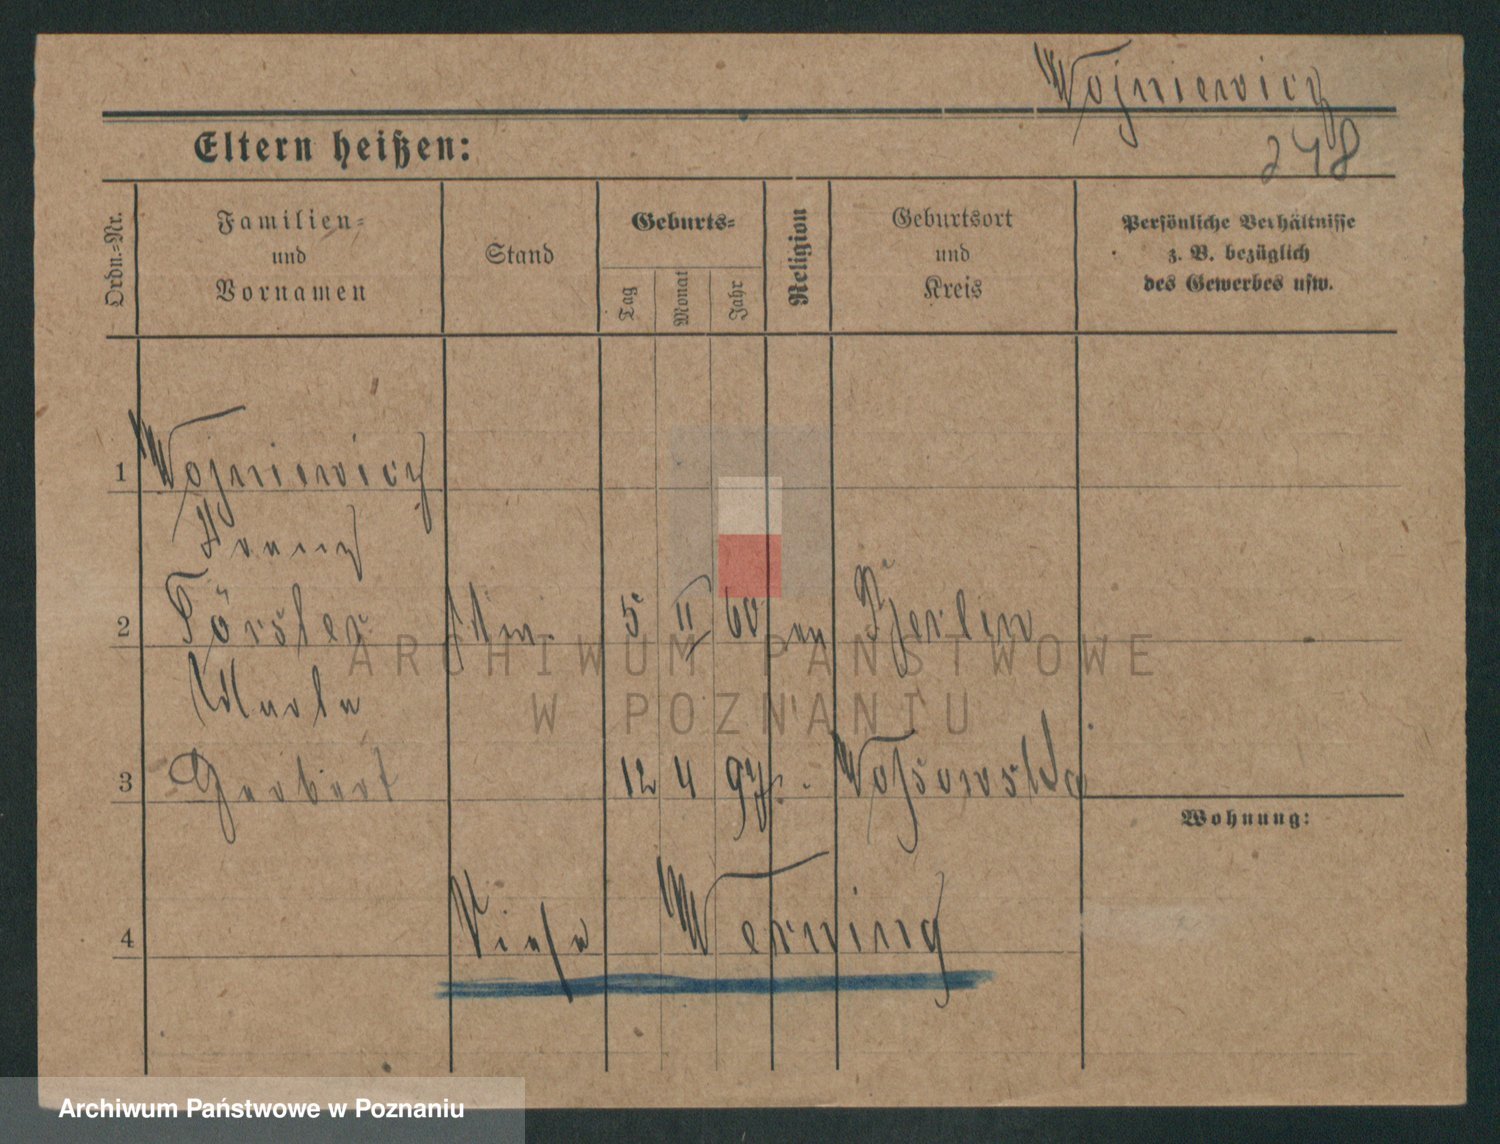 Wojniewicz
248
Eltern heißen:
Ordn.-Nr.
Familien-
und
Vornamen
Stand
Geburts-
Tag
Monat
Jahr
Religion
Geburtsort
und
Kreis
Persönliche Verhältnisse
z. B. bezüglich
des Gewerbes usw.
1 Wojniewicz
Franz
2 Förster 5 II 60 Berlin
ARCHIWUM PAŃSTWOWE
Marta
W POZNANIU
3 Herbert 12 4 97
Wohnung:
4 Siehe Werning
Archiwum Państwowe w Poznaniu